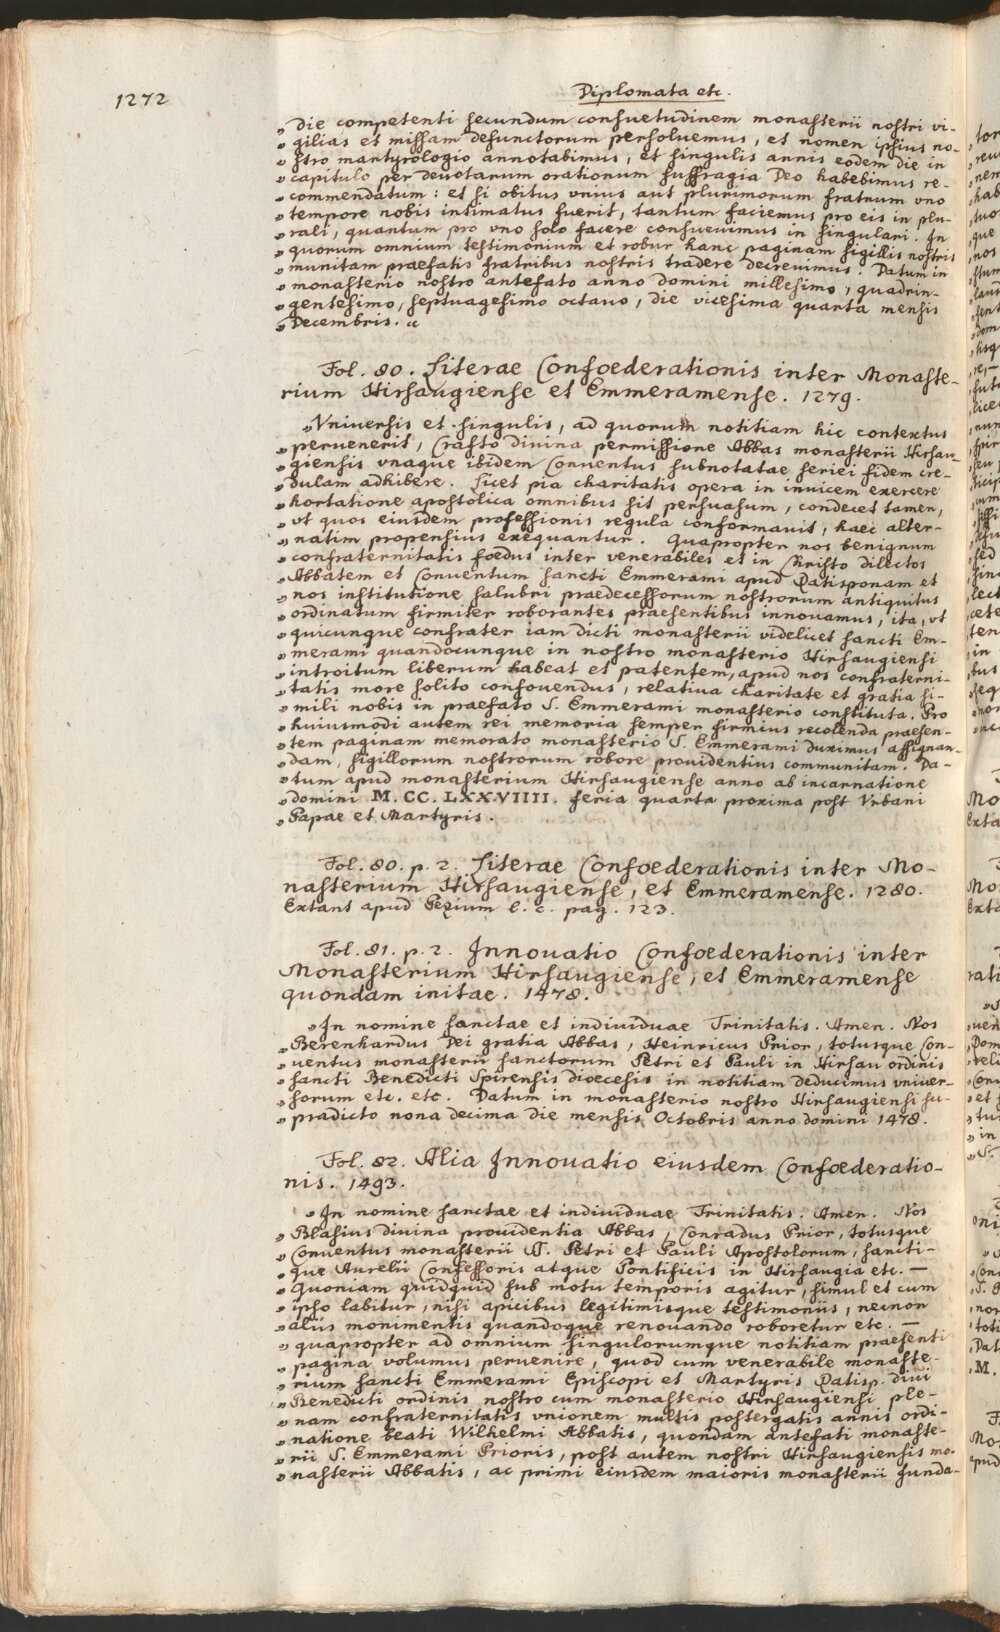 1272
Diplomata etc.
„ die competenti secundum consuetudinem monasterii nostri vi-
„ gilias et missam defunctorum persoluemus, et nomen ipsius no-
„ stro martyrologio annotabimus, et singulis annis eodem die in
„ capitulo per deuotarum orationum suffragia Deo habebimus re-
„ commendatum: et si obitus vnius aut plurimorum fratrum vno
„ tempore nobis intimatus fuerit, tantum faciemus pro eis in plu-
„ rali, quantum pro vno solo facere consueuimus in singulari. In
„ quorum omnium testimonium et robur hanc paginam sigillis nostris
„ munitam praefatis fratribus nostris tradere decreuimus. Datum in
„ monasterio nostro antefato anno domini millesimo, quadrin-
„ gentesimo, septuagesimo octauo, die vicesima quarta mensis
„ Decembris. “
Fol. 80. Literae Confoederationis inter Monaste-
rium Hirsaugiense et Emmeramense. 1279.
„ Vniuersis et singulis, ad quorum notitiam hic contextus
„ peruenerit, Crafto diuina permissione Abbas monasterii Hirsau-
„ giensis vnaque ibidem Conuentus subnotatae seriei fidem cre-
„ dulam adhibere. Licet pia charitatis opera in inuicem exercere
„ hortatione apostolica omnibus sit persuasum, condecet tamen,
„ vt quos eiusdem professionis regula conformauit, haec alter-
„ natim propensius exequantur. Quapropter nos benignum
„ confraternitatis foedus inter venerabiles et in Christo dilectos
„ Abbatem et Conuentum sancti Emmerami apud Ratisponam et
„ nos institutione salubri praedecessorum nostrorum antiquitus
„ ordinatum firmiter roborantes praesentibus innouamus, ita, vt
„ quicunque confrater iam dicti monasterii videlicet sancti Em-
„ merami quandocunque in nostro monasterio Hirsaugiensi
„ introitum liberum habeat et patentem, apud nos confraterni-
„ tatis more solito confouendus, relatiua charitate et gratia si-
„ mili nobis in praefato S. Emmerami monasterio constituta. Pro
„ huiusmodi autem rei memoria semper firmius recolenda praesen-
„ tem paginam memorato monasterio S. Emmerami duximus assignan-
„ dam, sigillorum nostrorum robore prouidentius communitam. Da-
„ tum apud monasterium Hirsaugiense anno ab incarnatione
„ domini M. CC. LXXVIIII. feria quarta proxima post Vrbani
„ Papae et Martyris.
Fol. 80. p. 2. Literae Confoederationis inter Mo-
nasterium Hirsaugiense, et Emmeramense. 1280.
Extant apud Pezium l. c. pag. 123.
Fol. 81. p. 2. Innouatio Confoederationis inter
Monasterium Hirsaugiense, et Emmeramense
quondam initae. 1478.
„ In nomine sanctae et indiuiduae Trinitatis. Amen. Nos
„ Berenhardus Dei gratia Abbas, Heinricus Prior, totusque Con-
„ uentus monasterii sanctorum Petri et Pauli in Hirsau ordinis
„ sancti Benedicti Spirensis dioecesis in notitiam deducimus vniuer-
„ sorum etc. etc. Datum in monasterio nostro Hirsaugiensi su-
„ pradicto nona decima die mensis Octobris anno domini 1478.
Fol. 82. Alia Innouatio eiusdem Confoederatio-
nis. 1493.
„ In nomine sanctae et indiuiduae Trinitatis. Amen. Nos
„ Blasius diuina prouidentia Abbas, Conradus Prior, totusque
„ Conuentus monasterii SS. Petri et Pauli Apostolorum, sancti-
„ que Aurelii Confessoris atque Pontificis in Hirsaugia etc. —
„ Quoniam quidquid sub motu temporis agitur, simul et cum
„ ipso labitur, nisi apicibus legitimisque testimoniis, necnon
„ aliis monimentis quandoque renouando roboretur etc. —
„ quapropter ad omnium singulorumque notitiam praesenti
„ pagina volumus peruenire, quod cum venerabile monaste-
„ rium sancti Emmerami Episcopi et Martyris Ratisp. diui
„ Benedicti ordinis nostro cum monasterio Hirsaugiensi ple-
„ nam confraternitatis vnionem multis postergatis annis ordi-
„ natione beati Wilhelmi Abbatis, quondam antefati monaste-
„ rii S. Emmerami Prioris, post autem nostri Hirsaugiensis mo-
„ nasterii Abbatis, ac primi eiusdem maioris monasterii funda-